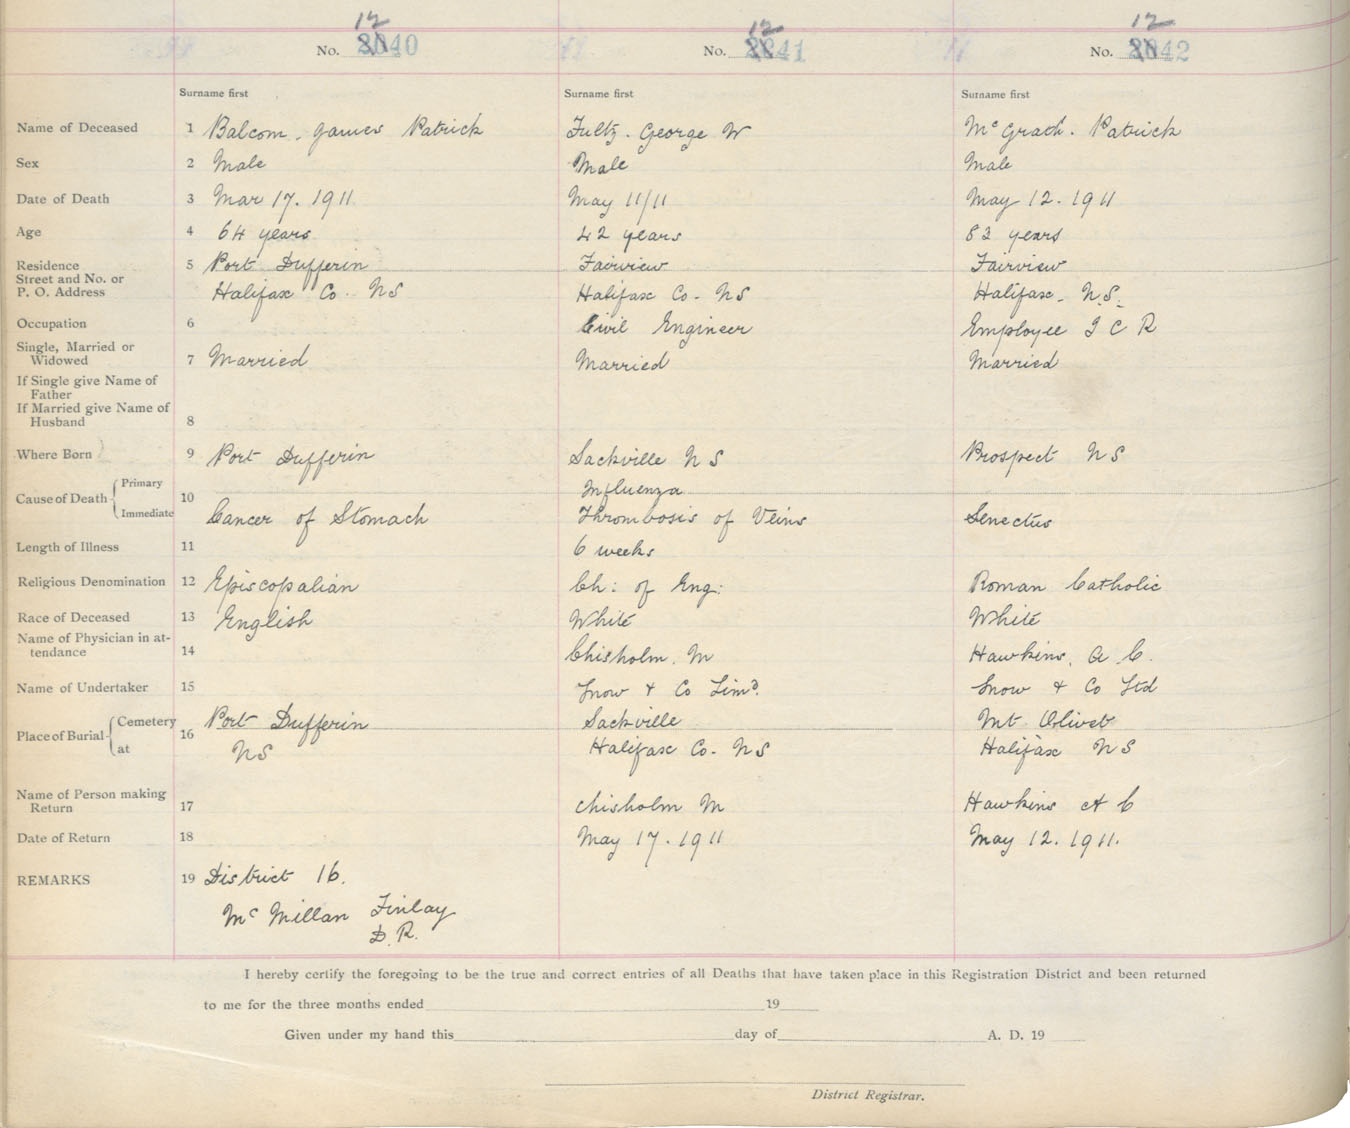 12 12 12
No. 3040 No. 2241 No. 3042
Surname first Surname first Surname first
Name of Deceased 1 Balcom. James Patrick Fultz. George W McGrath. Patrick
Sex 2 Male Male Male
Date of Death 3 Mar 17. 1911 May 11/11 May 12. 1911
Age 4 64 years 42 years 83 years
Residence 5 Port Dufferin Fairview Fairview
Street and No. or
P. O. Address Halifax Co. NS Halifax Co - NS Halifax - N.S.
Occupation 6 Civil Engineer Employee I C R
Single, Married or
Widowed 7 Married Married Married
If Single give Name of
Father
If Married give Name of
Husband 8
Where Born 9 Port Dufferin Sackville N S Prospect N S
Cause of Death Primary 10 Influenza
Immediate Cancer of Stomach Thrombosis of Veins Senectus
Length of Illness 11 6 weeks
Religious Denomination 12 Episcopalian Ch: of Eng: Roman Catholic
Race of Deceased 13 English White White
Name of Physician in at-
tendance 14 Chisholm. M Hawkins. A C.
Name of Undertaker 15 Snow & Co Limd. Snow & Co Ltd
Place of Burial Cemetery 16 Port Dufferin Sackville Mt Olivet
at NS Halifax Co - NS Halifax NS
Name of Person making
Return 17 Chisholm M Hawkins A C
Date of Return 18 May 17. 1911 May 12. 1911.
REMARKS 19 District 16.
McMillan Finlay
D. R.
I hereby certify the foregoing to be the true and correct entries of all Deaths that have taken place in this Registration District and been returned
to me for the three months ended 19
Given under my hand this day of A. D. 19
District Registrar.